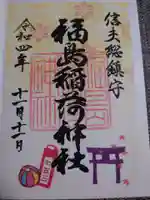 信夫総鎮守
福島稲荷神社
令和四年
十一月十一日